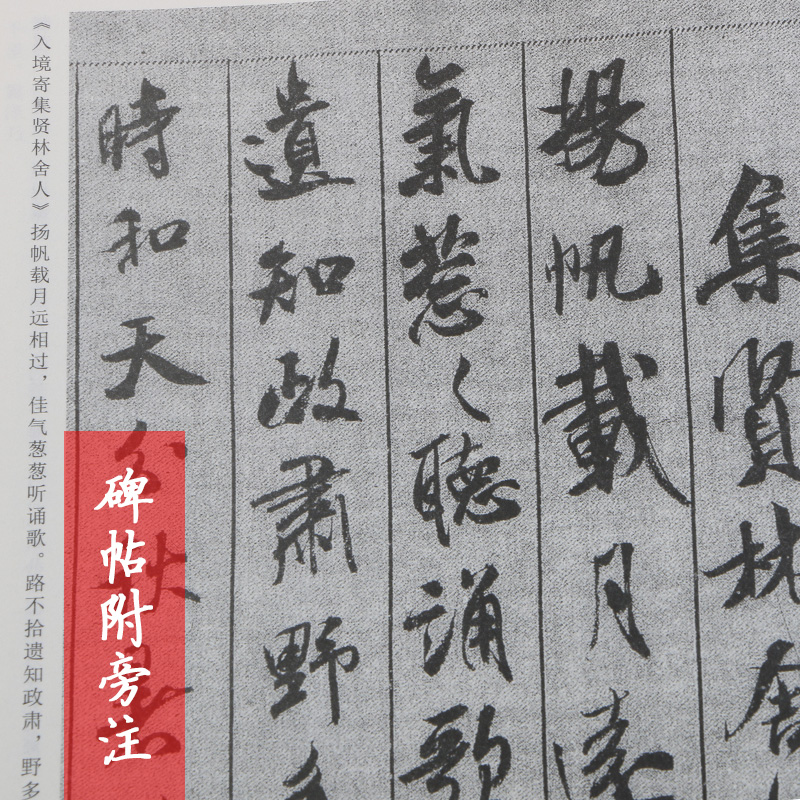 集贤林舍
扬帆載月遠
氣葱々聽誦歌
遺知政肅野多
時和天分秋
碑帖附旁注
《入境寄集贤林舍人》扬帆载月远相过，佳气葱葱听诵歌。路不拾遗知政肃，野多